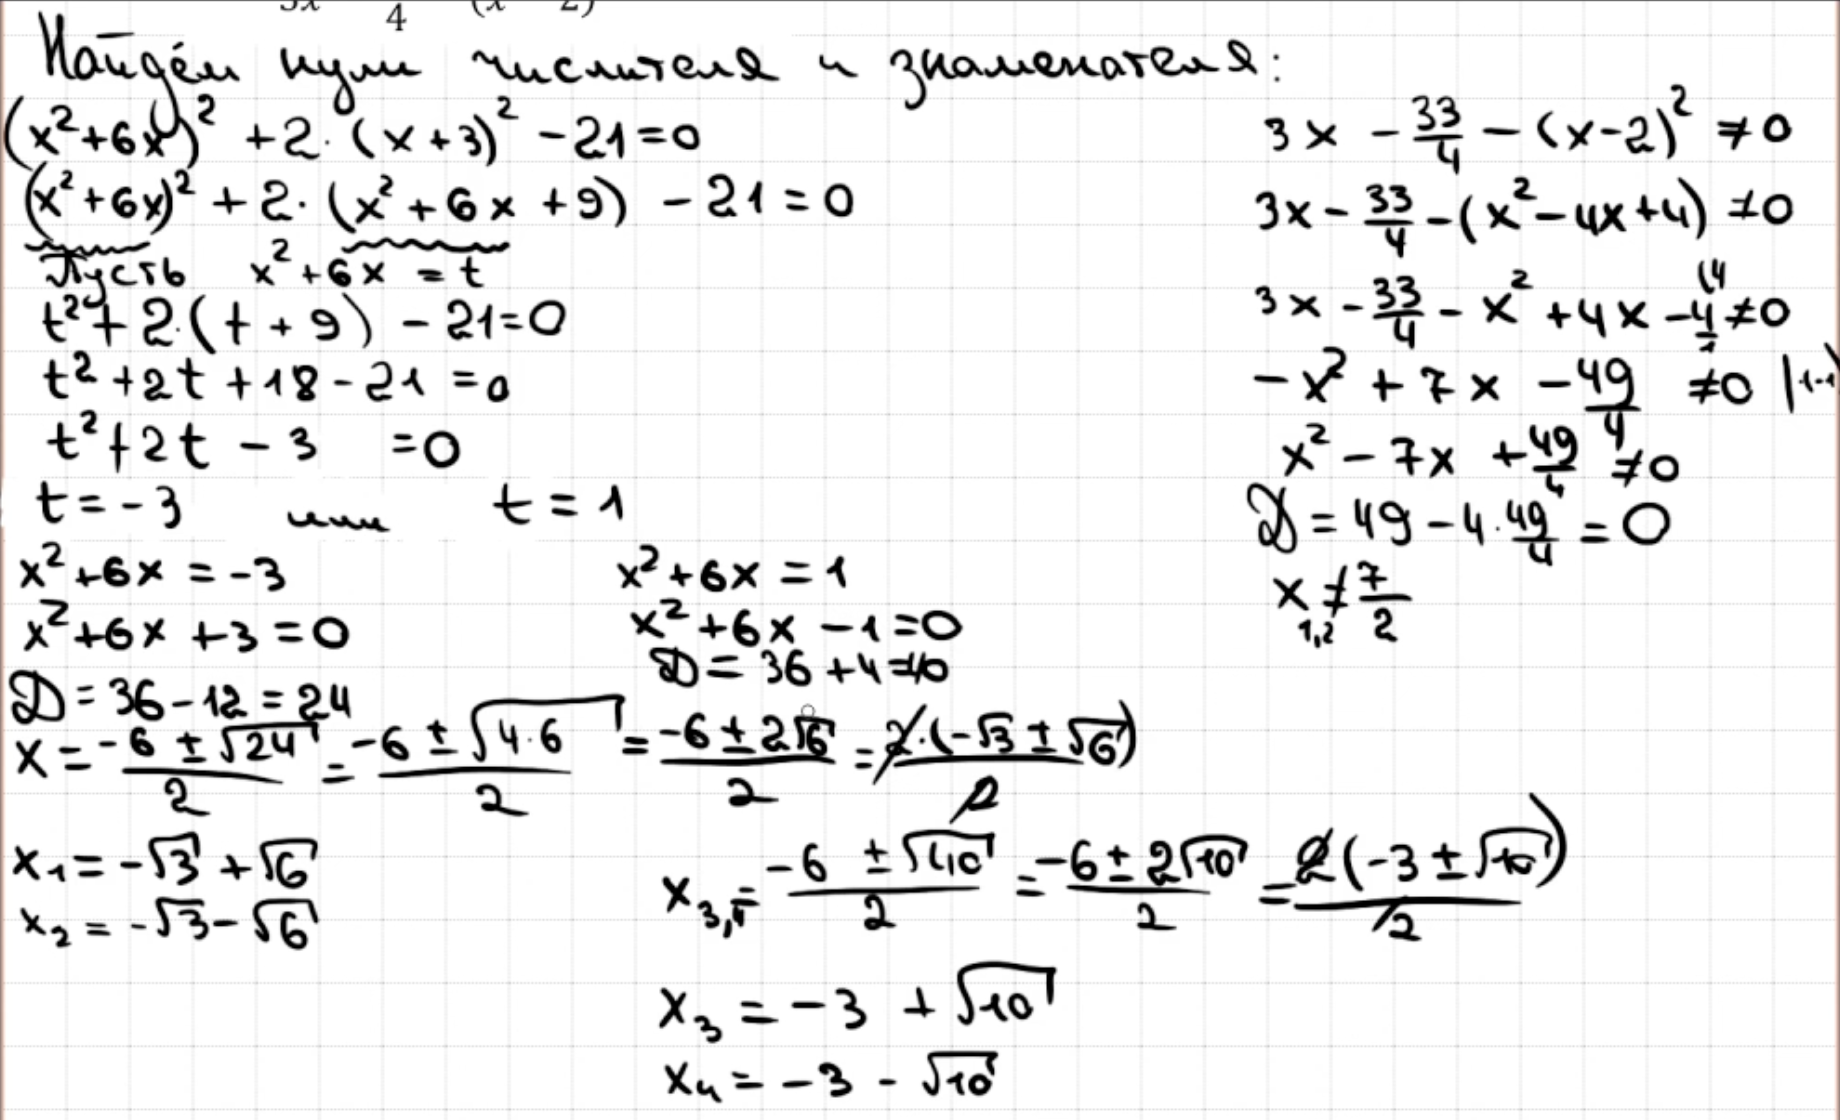 3x 4 (x 2)
Найдём нули числителя и знаменателя:
(x²+6x)² + 2·(x+3)² - 21=0
(x²+6x)² + 2·(x²+6x+9) - 21=0
Пусть x²+6x = t
t²+2·(t+9) - 21=0
t²+2t+18-21=0
t²+2t-3 =0
t=-3 или t=1
x²+6x=-3
x²+6x+3=0
D=36-12=24
x=(-6±√24)/2=(-6±√(4·6))/2=(-6±2√6)/2=(2·(-√3±√6))/2
x₁=-√3+√6
x₂=-√3-√6
x²+6x=1
x²+6x-1=0
D=36+4=40
x₃,₄=(-6±√(4·10))/2=(-6±2√10)/2=(2(-3±√10))/2
x₃=-3+√10
x₄=-3-√10
3x-33/4-(x-2)²≠0
3x-33/4-(x²-4x+4)≠0
3x-33/4-x²+4x-4/1(4≠0
-x²+7x-49/4≠0 |·(-1)
x²-7x+49/4≠0
D=49-4·49/4=0
x₁,₂≠7/2